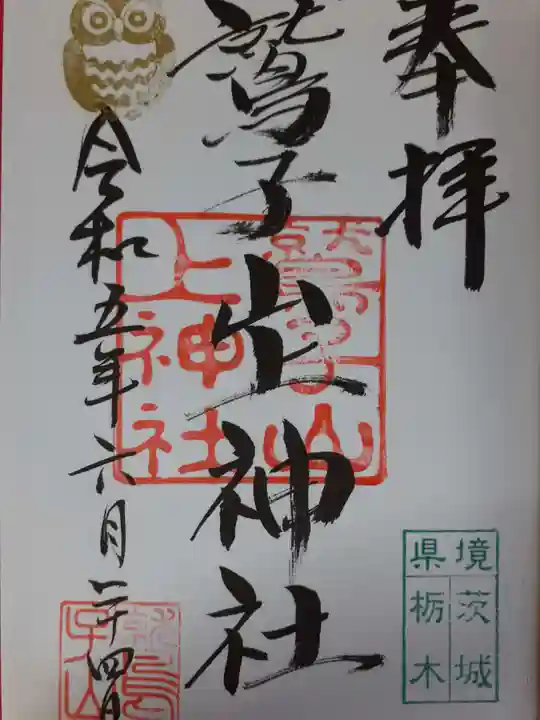 奉拝
鷲子山上神社
令和五年六月二十四日
鷲子山
上神社
境
県
茨城
栃木
鷲子山